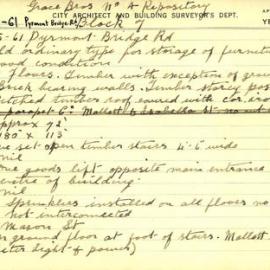 Grace Bros No A Repository
CITY ARCHITECT AND BUILDING SURVEYOR'S DEPT.
-61 Pyrmont Bridge Rd Block 7
-61 Pyrmont Bridge Rd
ld ordinary type for storage of furnitu
ood condition
Floors. Timber with exception of gro
Brick bearing walls. Timber storey pos
itched timber roof covered with cor. iro
parapet 6" Mallett &
pprox 72'
180' x 113'
ne set open timber stairs 4-6 wide
nil
One goods lift opposite main entrance
centre of building
nil
Sprinklers installed on all floors no
not interconnected
Mason St
n ground floor at foot of stairs. Mallett
eter light & power)